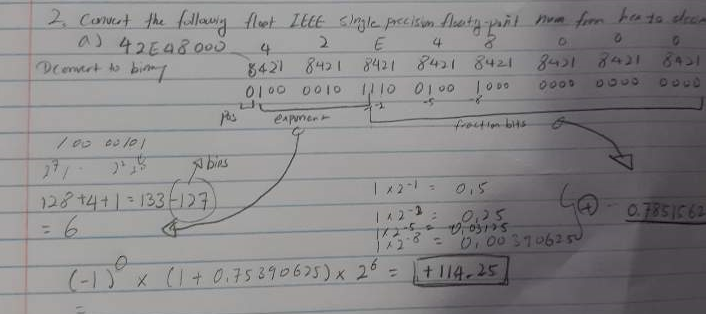 2. Convert the following float IEEE single precision floaty-point num from hex to decim
a) 42E48000 4 2 E 4 8 0 0 0
Dconvert to binary 8421 8421 8421 8421 8421 8421 8421 8421
0100 0010 1110 0100 1000 0000 0000 0000
-2 -5 -8
Pos exponent fraction bits
100 00101
2⁷ 2² 2⁰
bias
128+4+1 = 133-127
= 6
1 x 2⁻¹ = 0.5
1 x 2⁻² = 0.25
1 x 2⁻⁵ = 0.03125
1 x 2⁻⁸ = 0.00390625
+ 0.7851562
(-1)⁰ x (1 + 0.75390625) x 2⁶ = +114.25
=